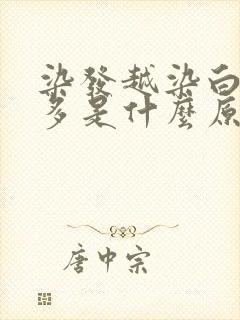 染發越染白
多是什麼原
唐中宗